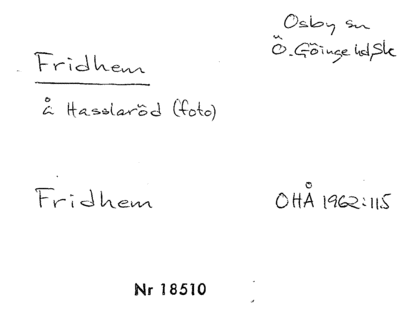 Osby sn
Ö. Göinge hd, Sk
Fridhem
å Hasslaröd (foto)
Fridhem
OHÅ 1962:115
Nr 18510